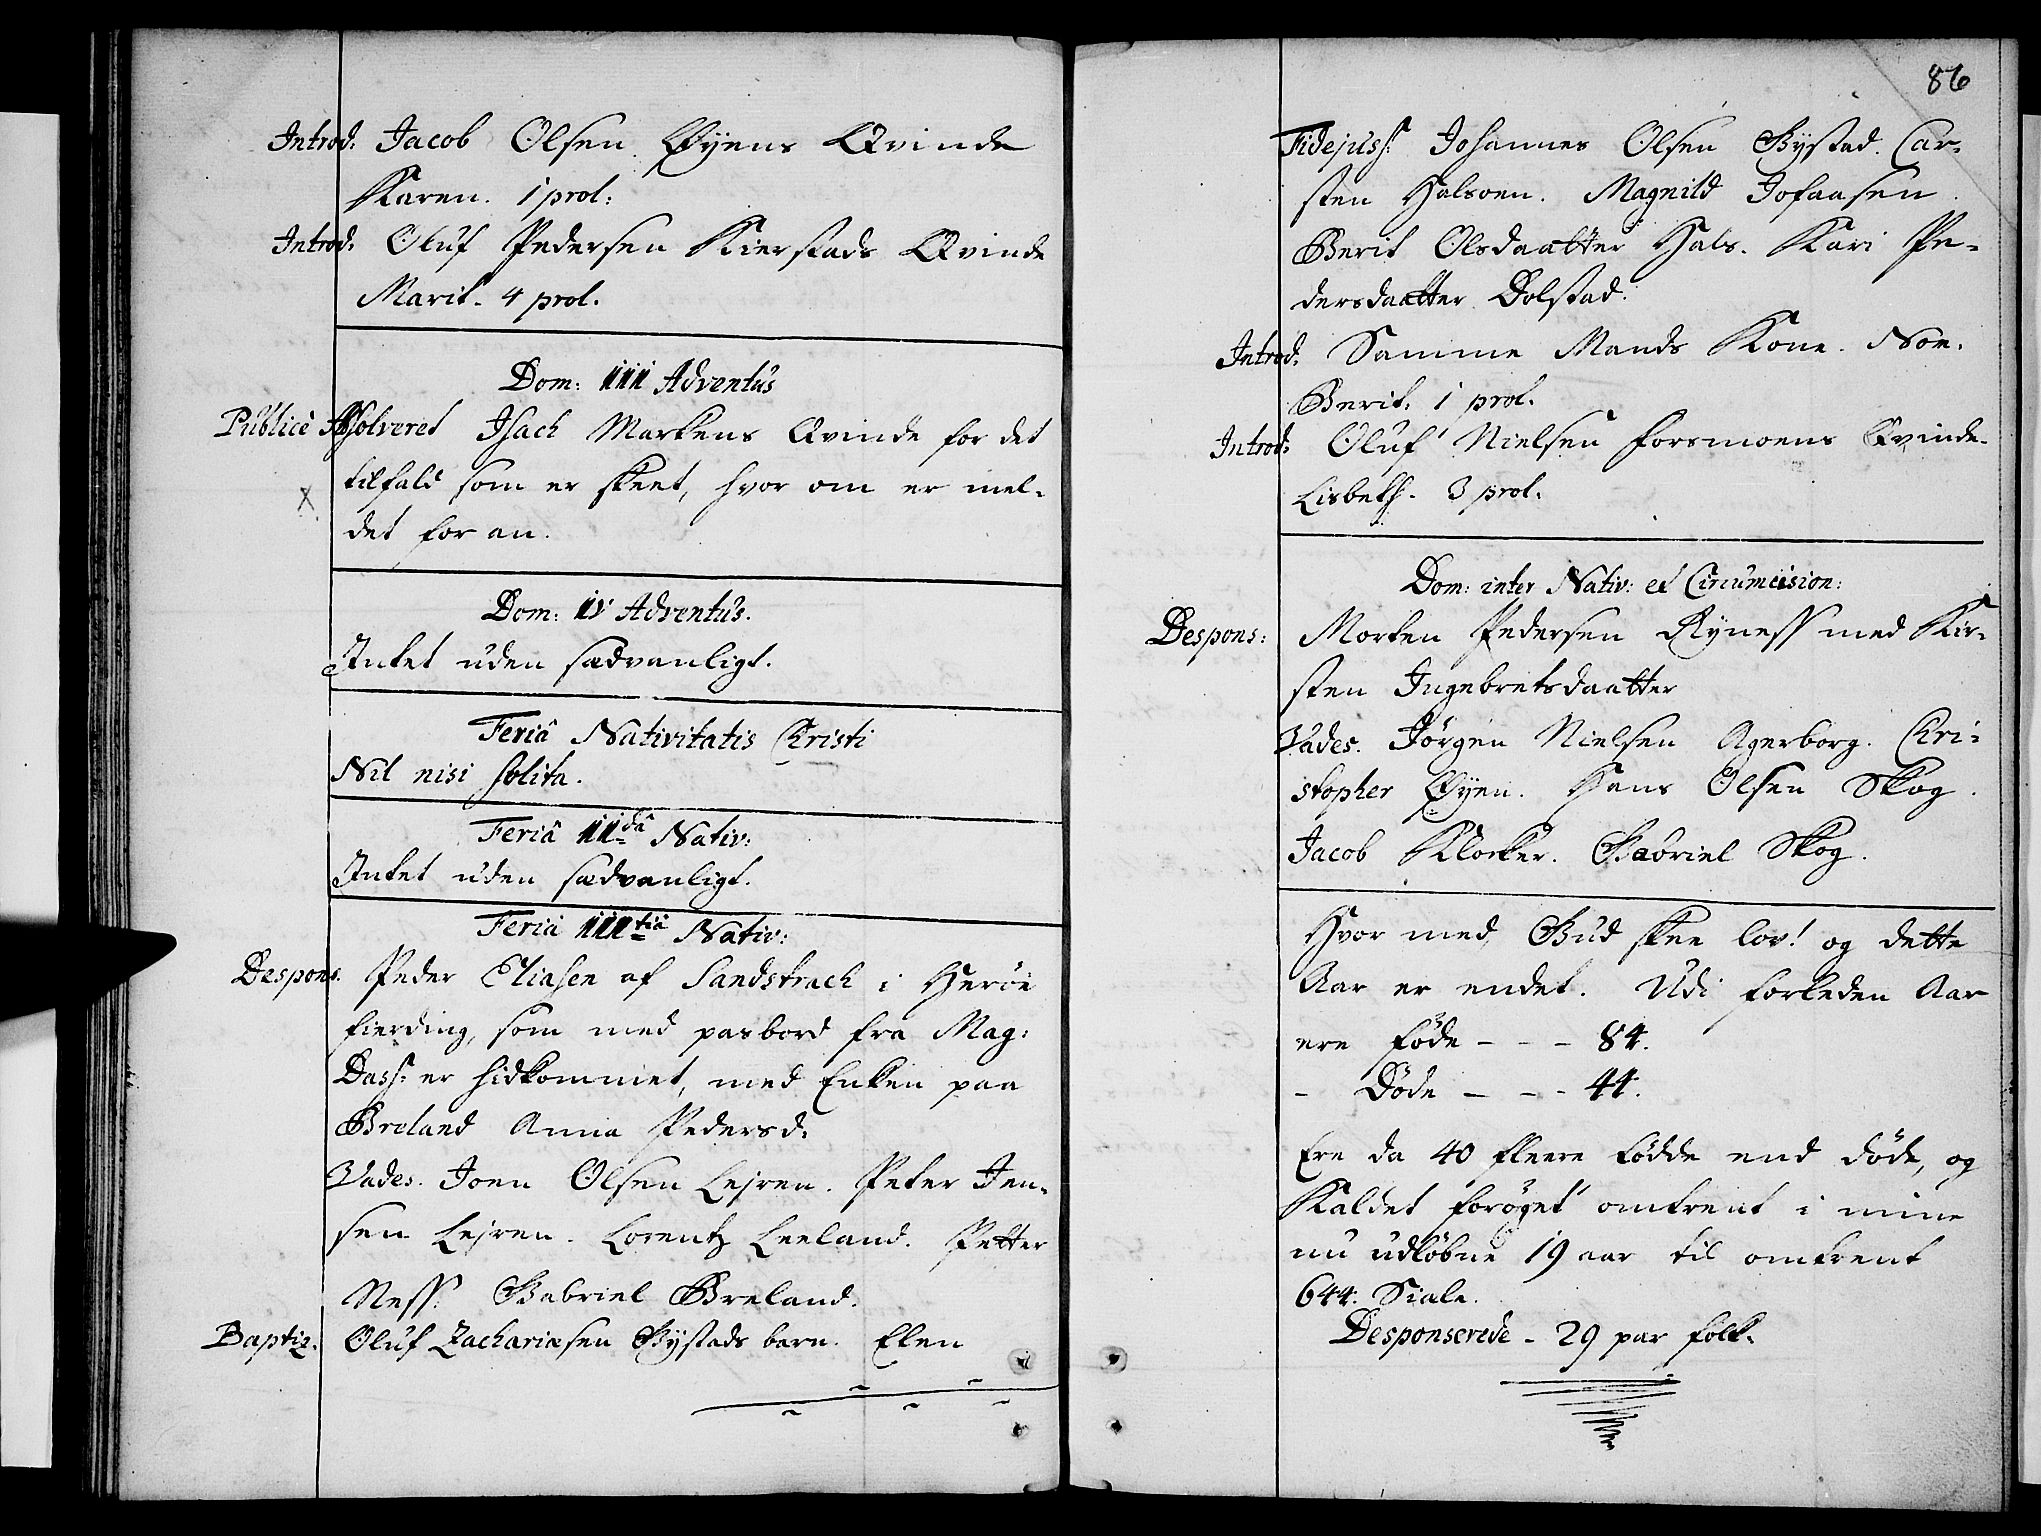 Introd: Jacob Olsen Øyens Qvinde
Karen. 1 prol:
Introd: Oluf Pedersen Kierstads Qvinde
Marit. 4 prol.
Dom: III Adventus
Publicè Absolveret Isach Markens Qvinde for det
tilfald som er skeet, hvor om er mel-
det for an.
X.
Dom: IV Adventus.
Intet uden sædvanligt.
Feriâ Nativitatis Christi
Nil nisi solita.
Feriâ II dâ Nativ:
Intet uden sædvanligt.
Feriâ III tiâ Nativ:
Despons. Peder Eliasen af Sandstrach i Herøe
fierding, som med pasbord fra Mag:
Dass: er hidkommet, med Enken paa
Breland Anna Pedersd:
Vades. Joen Olsen Lejren. Peter Jen-
sen Lejren. Lorentz Leeland. Petter
Ness. Gabriel Breland.
Baptiz. Oluf Zachariæsen Bystads barn. Elen
86
Fidejuss: Johannes Olsen Bystad. Car-
sten Halsoen. Magnild Jofaasen.
Berit Olsdaatter Hals. Kari Pe-
dersdaatter Dolstad.
Introd: Samme Mands Kone. Non.
Berit. 1 prol.
Introd: Oluf Nielsen Forsmoens Qvinde.
Lisbeth. 3 prol.
Dom: inter Nativ: et Circumcision:
Despons: Morten Pedersen Ryness med Kir-
sten Ingebretsdaatter
Vades. Jørgen Nielsen Agerborg. Chri-
stopher Øyen. Hans Olsen Skog.
Jacob Klocker. Gabriel Skog.
Hvor med, Gud skee lov! og dette
Aar er endet. Udi forleden Aar
ere føde - - - 84.
- Døde - - - 44.
Ere da 40 fleere fødde end døde, og
Kaldet forøget omtrent i mine
nu udløbne 19 aar til omtrent
644. Siale.
Desponserede - 29 par folk.